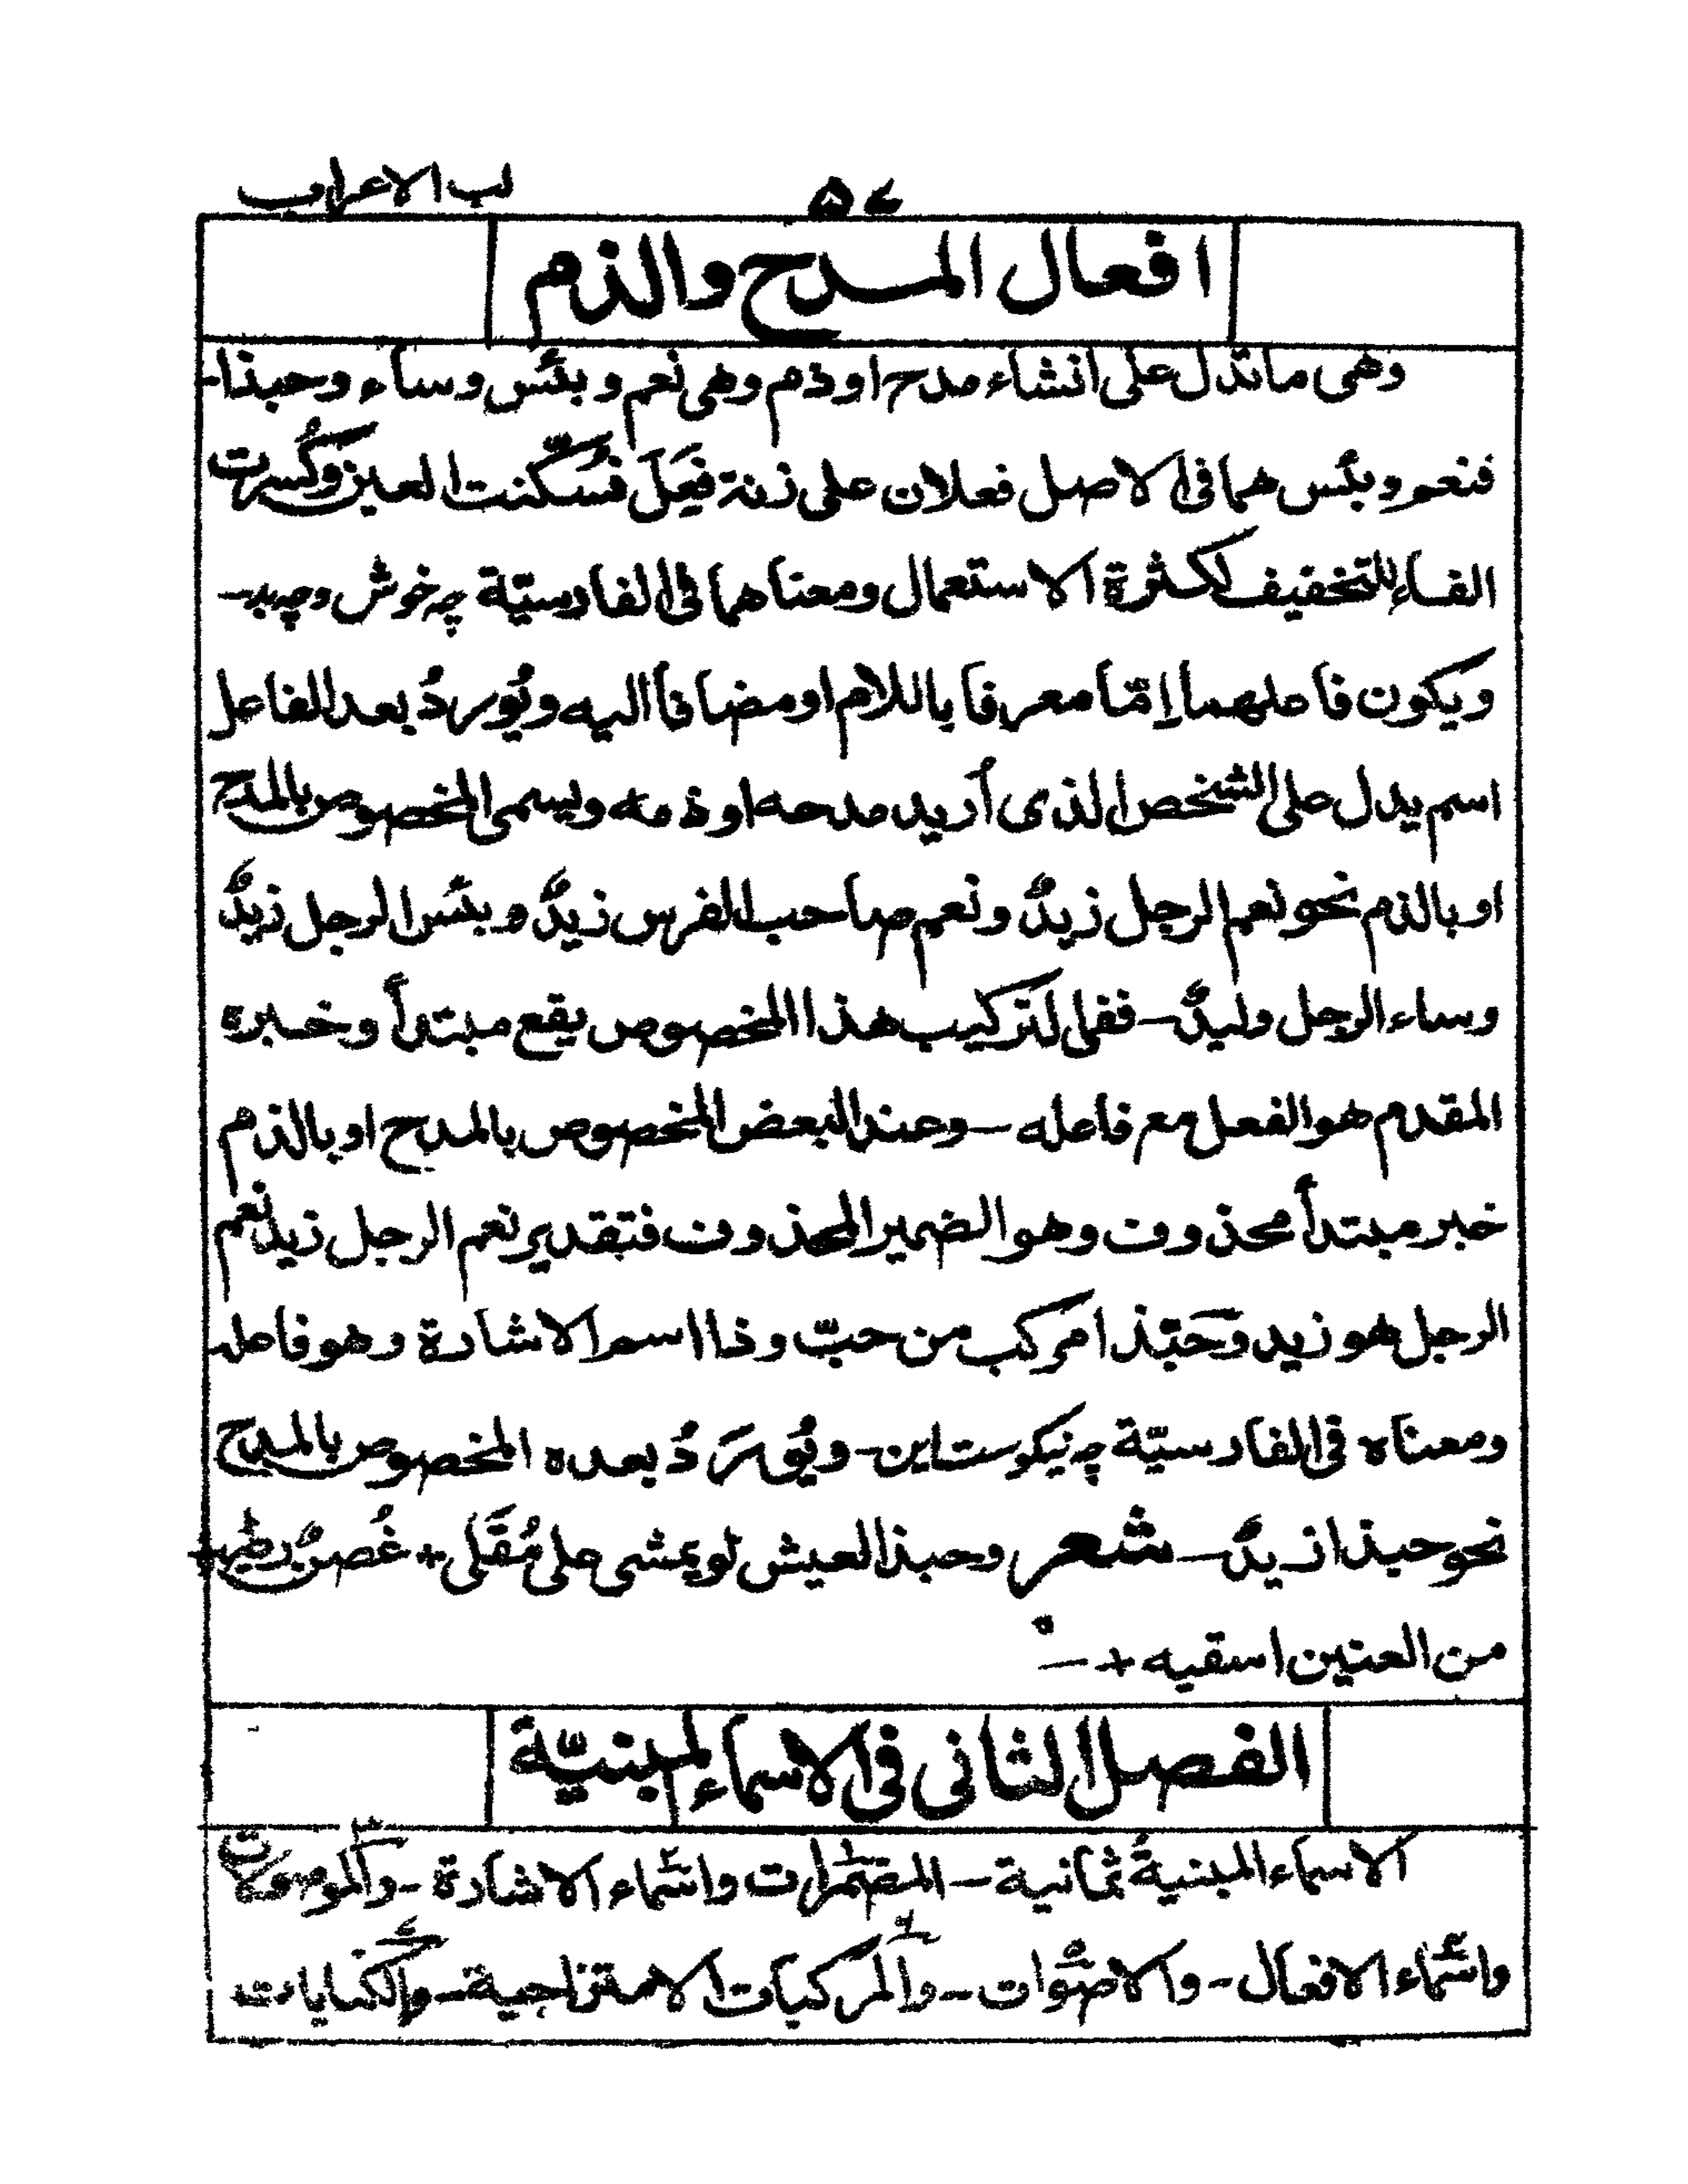 لب الاعراب
۵۷
افعال المدح والذم
وهی ماتدل علی انشاء مدح او ذم وهی نعم و بئس وساء وحبذا-
فنعم وبئس هما فی الاصل فعلان علی زنة فَعِلَ فسُكّنت العين وكُسرت
الفاء للتخفيف لكثرة الاستعمال ومعناهما فی الفارسيّة چه خوش وچه بد-
ويكون فاعلهما إمّا معرفا باللام او مضافا اليه ويُورد بعد الفاعل
اسم يدل علی الشخص الذی أريد مدحه او ذمه ويسمی المخصوص بالمدح
او بالذم نحو نعم الرجل زيدٌ ونعم صاحب الفرس زيدٌ وبئس الرجل زيدٌ
وساء الرجل وليدٌ- ففی التركيب هذا المخصوص يقع مبتدأ وخبره
المقدم هو الفعل مع فاعله- وعند البعض المخصوص بالمدح او بالذم
خبر مبتدأ محذوف وهو الضمير المحذوف فتقدير نعم الرجل زيد نعم
الرجل هو زيد وحَبّذا مركب من حبّ وذا اسم الاشارة وهو فاعله
ومعناه فی الفارسيّة چه نیکوست این- ويُورَدُ بعده المخصوص بالمدح
نحو حبذا زيدٌ- شعر وحبذا العيش لو يمشی علی مُقَلی + غُصنٌ رطيب +
من العنين اسقيه + -
الفصل الثانی فی الاسماء المبنيّة
الاسماء المبنيةُ ثمانية- المضمرات واسماء الاشارة- والموصولات
واسماء الافعال- والاصوات- والمركبات الامتزاجية- والكنايات